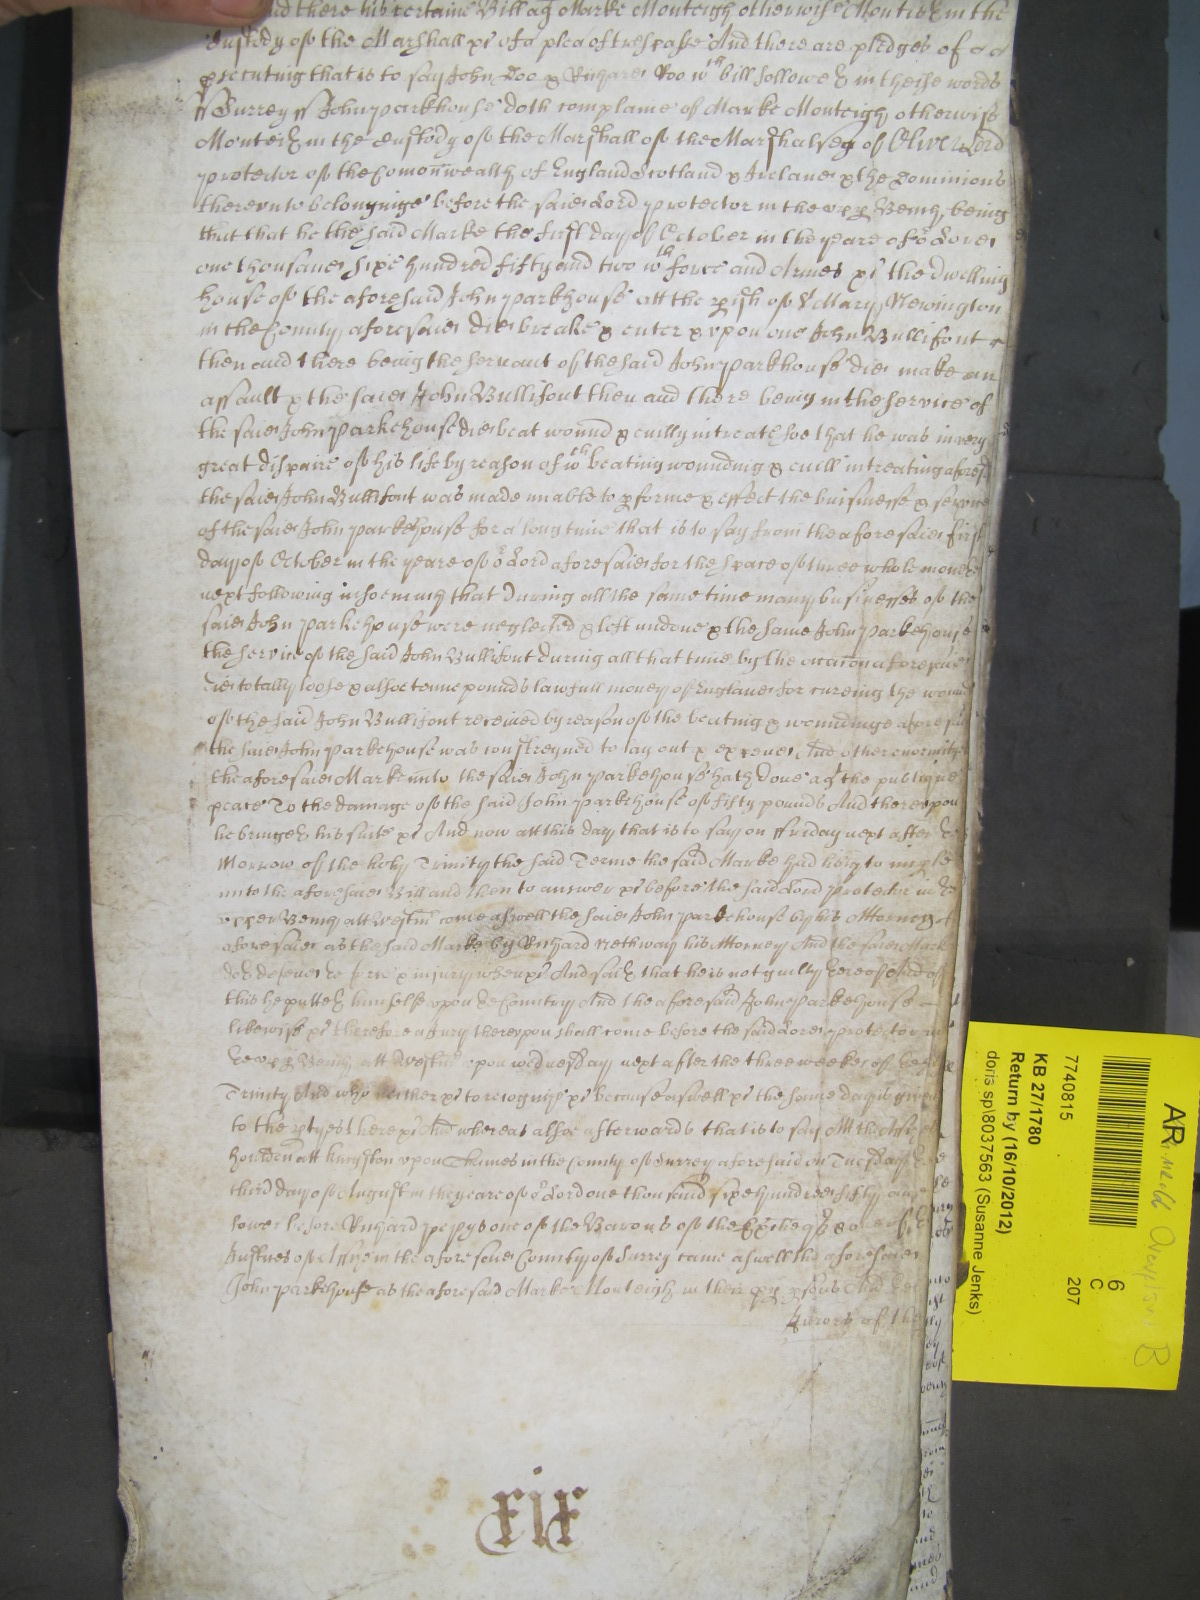 and there his certaine Bill agt Marke Monteigh otherwise Monteth in the
Custody of the Marshall &c of a plea of trespasse And there are pledges of
prosecuting that is to say John Doo & Richard Roo wch bill followeth in theise words
ss Surrey ss John Parkhouse doth complaine of Marke Monteigh otherwise
Monteth in the Custody of the Marshall of the Marshalsey of Oliver Lord
Protector of the Comonwealth of England Scotland & Ireland & the Dominions
thereunto belonginge before the said Lord Protector in the upp Bench being
that that he the said Marke the first day of October in the yeare of or Lord
one thousand sixe hundred fifty and two wth force and Armes &c the dwelling
house of the aforesaid John Parkhouse att the pish of St Mary Newington
in the County aforesaid did breake & enter & upon one John Bullifont
then and there being the servant of the said John Parkhouse did make an
assault & the said John Bullifont then and there being in the service of
the said John Parkehouse did beat wound & evilly intreate soe that he was in very
great dispaire of his life by reason of wch beating wounding & evill intreating aforesd
the said John Bullifont was made unable to pforme & effect the buisinesse & service
of the said John Parkehouse for a long time that is to say from the aforesaid first
day of October in the yeare of or Lord aforesaid for the space of three whole moneths
next following insoemuch that during all the same time many businesses of the
said John Parkehouse were neglected & left undone & the same John Parkehouse
the service of the said John Bullifont during all that time by the occasion aforesaid
did totally loose & alsoe tenne pounds lawfull money of England for cureing the wounds
of the said John Bullifont received by reason of the beating & woundinge aforesaid
the said John Parkehouse was constreyned to lay out & expend And other enormityes
the aforesaid Marke unto the said John Parkehouse hath done agt the publique
peace To the damage of the said John Parkehouse of fifty pounds And thereupon
he bringeth his suite &c And now att this day that is to say on ffriday next after the
Morrow of the holy Trinity the said Terme the said Marke had liberty to imple
unto the aforesaid Bill and then to answer &c before the said Lord Protector in the
upper Bench att Westm come aswell the said John Parkehouse by his Attorney
aforesaid as the said Marke by Richard Nethway his Attorney And the said Marke
doth defend the force & injury when &c And saith that he is not guilty thereof And of
this he putteth himselfe upon the Country And the aforesaid John Parkehouse
likewise &c therefore a Jury thereupon shall come before the said Lord Protector in
the upp Bench att Westm upon wednesday next after the three weekes of the holy
Trinity And who neither &c to recognize &c because aswell &c the same day is given
to the ptyes there &c And whereas alsoe afterwards that is to say Att the Assizes
houlden att Kingston upon Thames in the County of Surrey aforesaid on Tuesday the
third day of August in the yeare of or Lord one thousand sixe hundred fifty and
fower before Richard Pepys one of the Barons of the Excheqr
Justices of Assize in the aforesaid County of Surrey came aswell the aforesaid
John Parkehouse as the aforesaid Marke Monteigh in their pp psons And the
Jurors of the
xix
AR
6
C
207
7740815
KB 27/1780
Return by (16/10/2012)
doris sp\8037563 (Susanne Jenks)